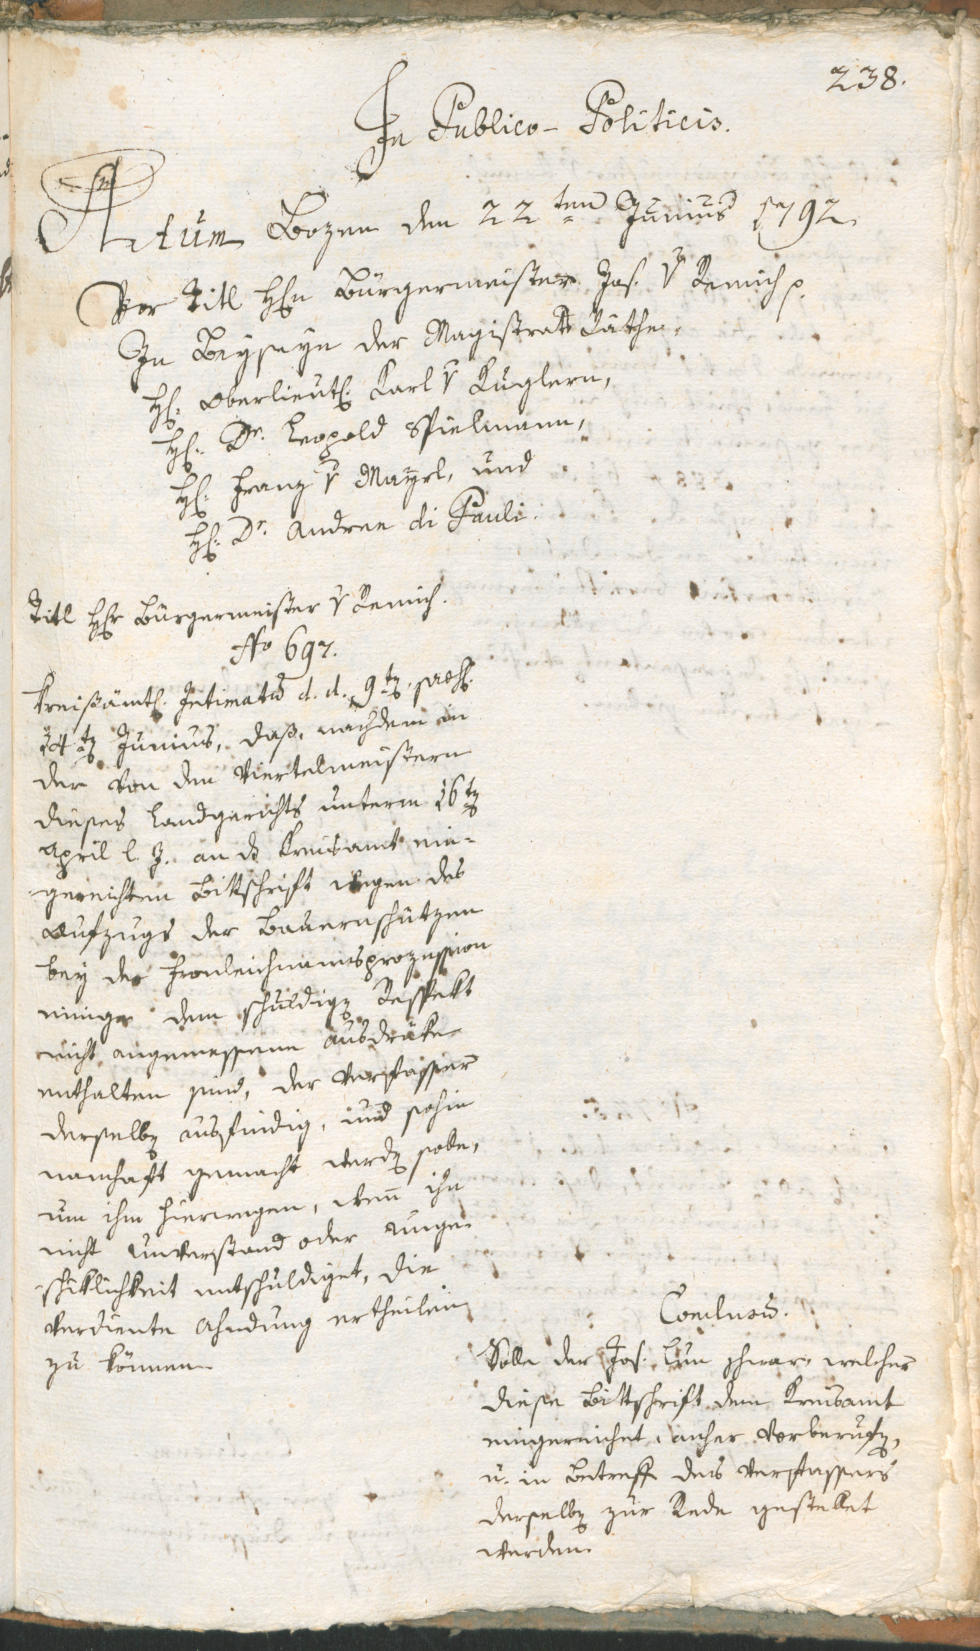 238.
In Publico-Politicis.
Actum Bozen den 22ten Junius 1792
Vor Titl Hl. Bürgermeister Jos. v Remich p.
In Beyseyn der Magistrats Räthe,
Hl. Oberlieut. Karl v Kuglern,
Hl. Dr. Leopold Spielmann,
Hl. Franz v Mayrl, und
Hl. Dr. Andree di Pauli.
Titl Hr Bürgermeister v Remich.
No 697.
Kreisämtl. Intimatum d. d. 9ten, praes.
14ten Junius, daß, nachdem in
der von den Viertelmeistern
dieses Landgerichts unterm 16ten
April l. J. an ds Kreisamt ein-
gereichten Bittschrift wegen des
Aufzugs der Bauernschützen
bey der Fronleichnamsprozession
einige dem schuldigen Respekt
nicht angemessene Ausdrüke
enthalten sind, der Verfasser
derselben ausfindig, und sohin
namhaft gemacht werden solle,
um ihm hierwegen, wenn ihn
nicht Unverstand oder Unge-
schiklichkeit entschuldiget, die
verdiente Ahndung ertheilen
zu können.
Conclusum.
Solle der Jos. Lun zwar, welcher
diese Bittschrift dem Kreisamt
eingereichet, anher vorberufen,
u. in Betreff des Verfassers
derselben zur Rede gestellet
werden.